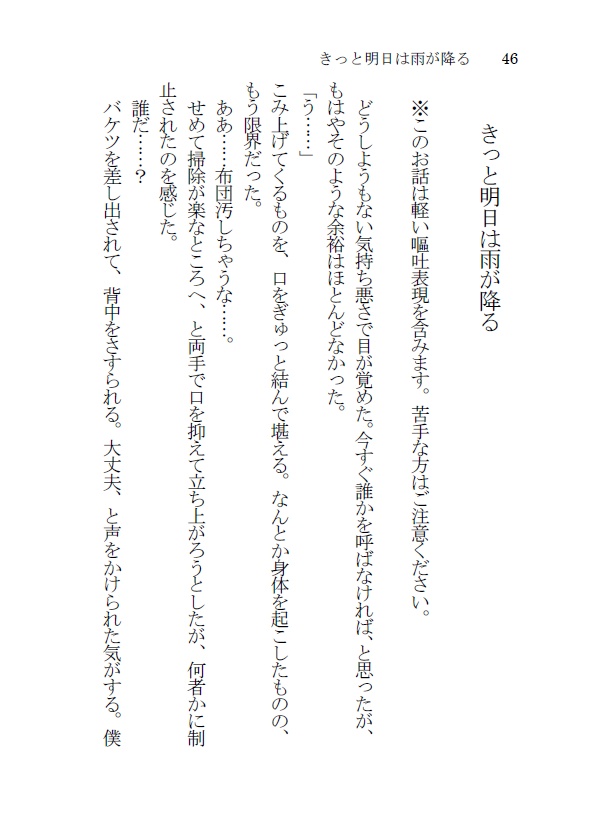 きっと明日は雨が降る　46
きっと明日は雨が降る
※このお話は軽い嘔吐表現を含みます。苦手な方はご注意ください。
どうしようもない気持ち悪さで目が覚めた。今すぐ誰かを呼ばなければ、と思ったが、
もはやそのような余裕はほとんどなかった。
「う……」
こみ上げてくるものを、口をぎゅっと結んで堪える。なんとか身体を起こしたものの、
もう限界だった。
ああ……布団汚しちゃうな……。
せめて掃除が楽なところへ、と両手で口を抑えて立ち上がろうとしたが、何者かに制
止されたのを感じた。
誰だ……？
バケツを差し出されて、背中をさすられる。大丈夫、と声をかけられた気がする。僕